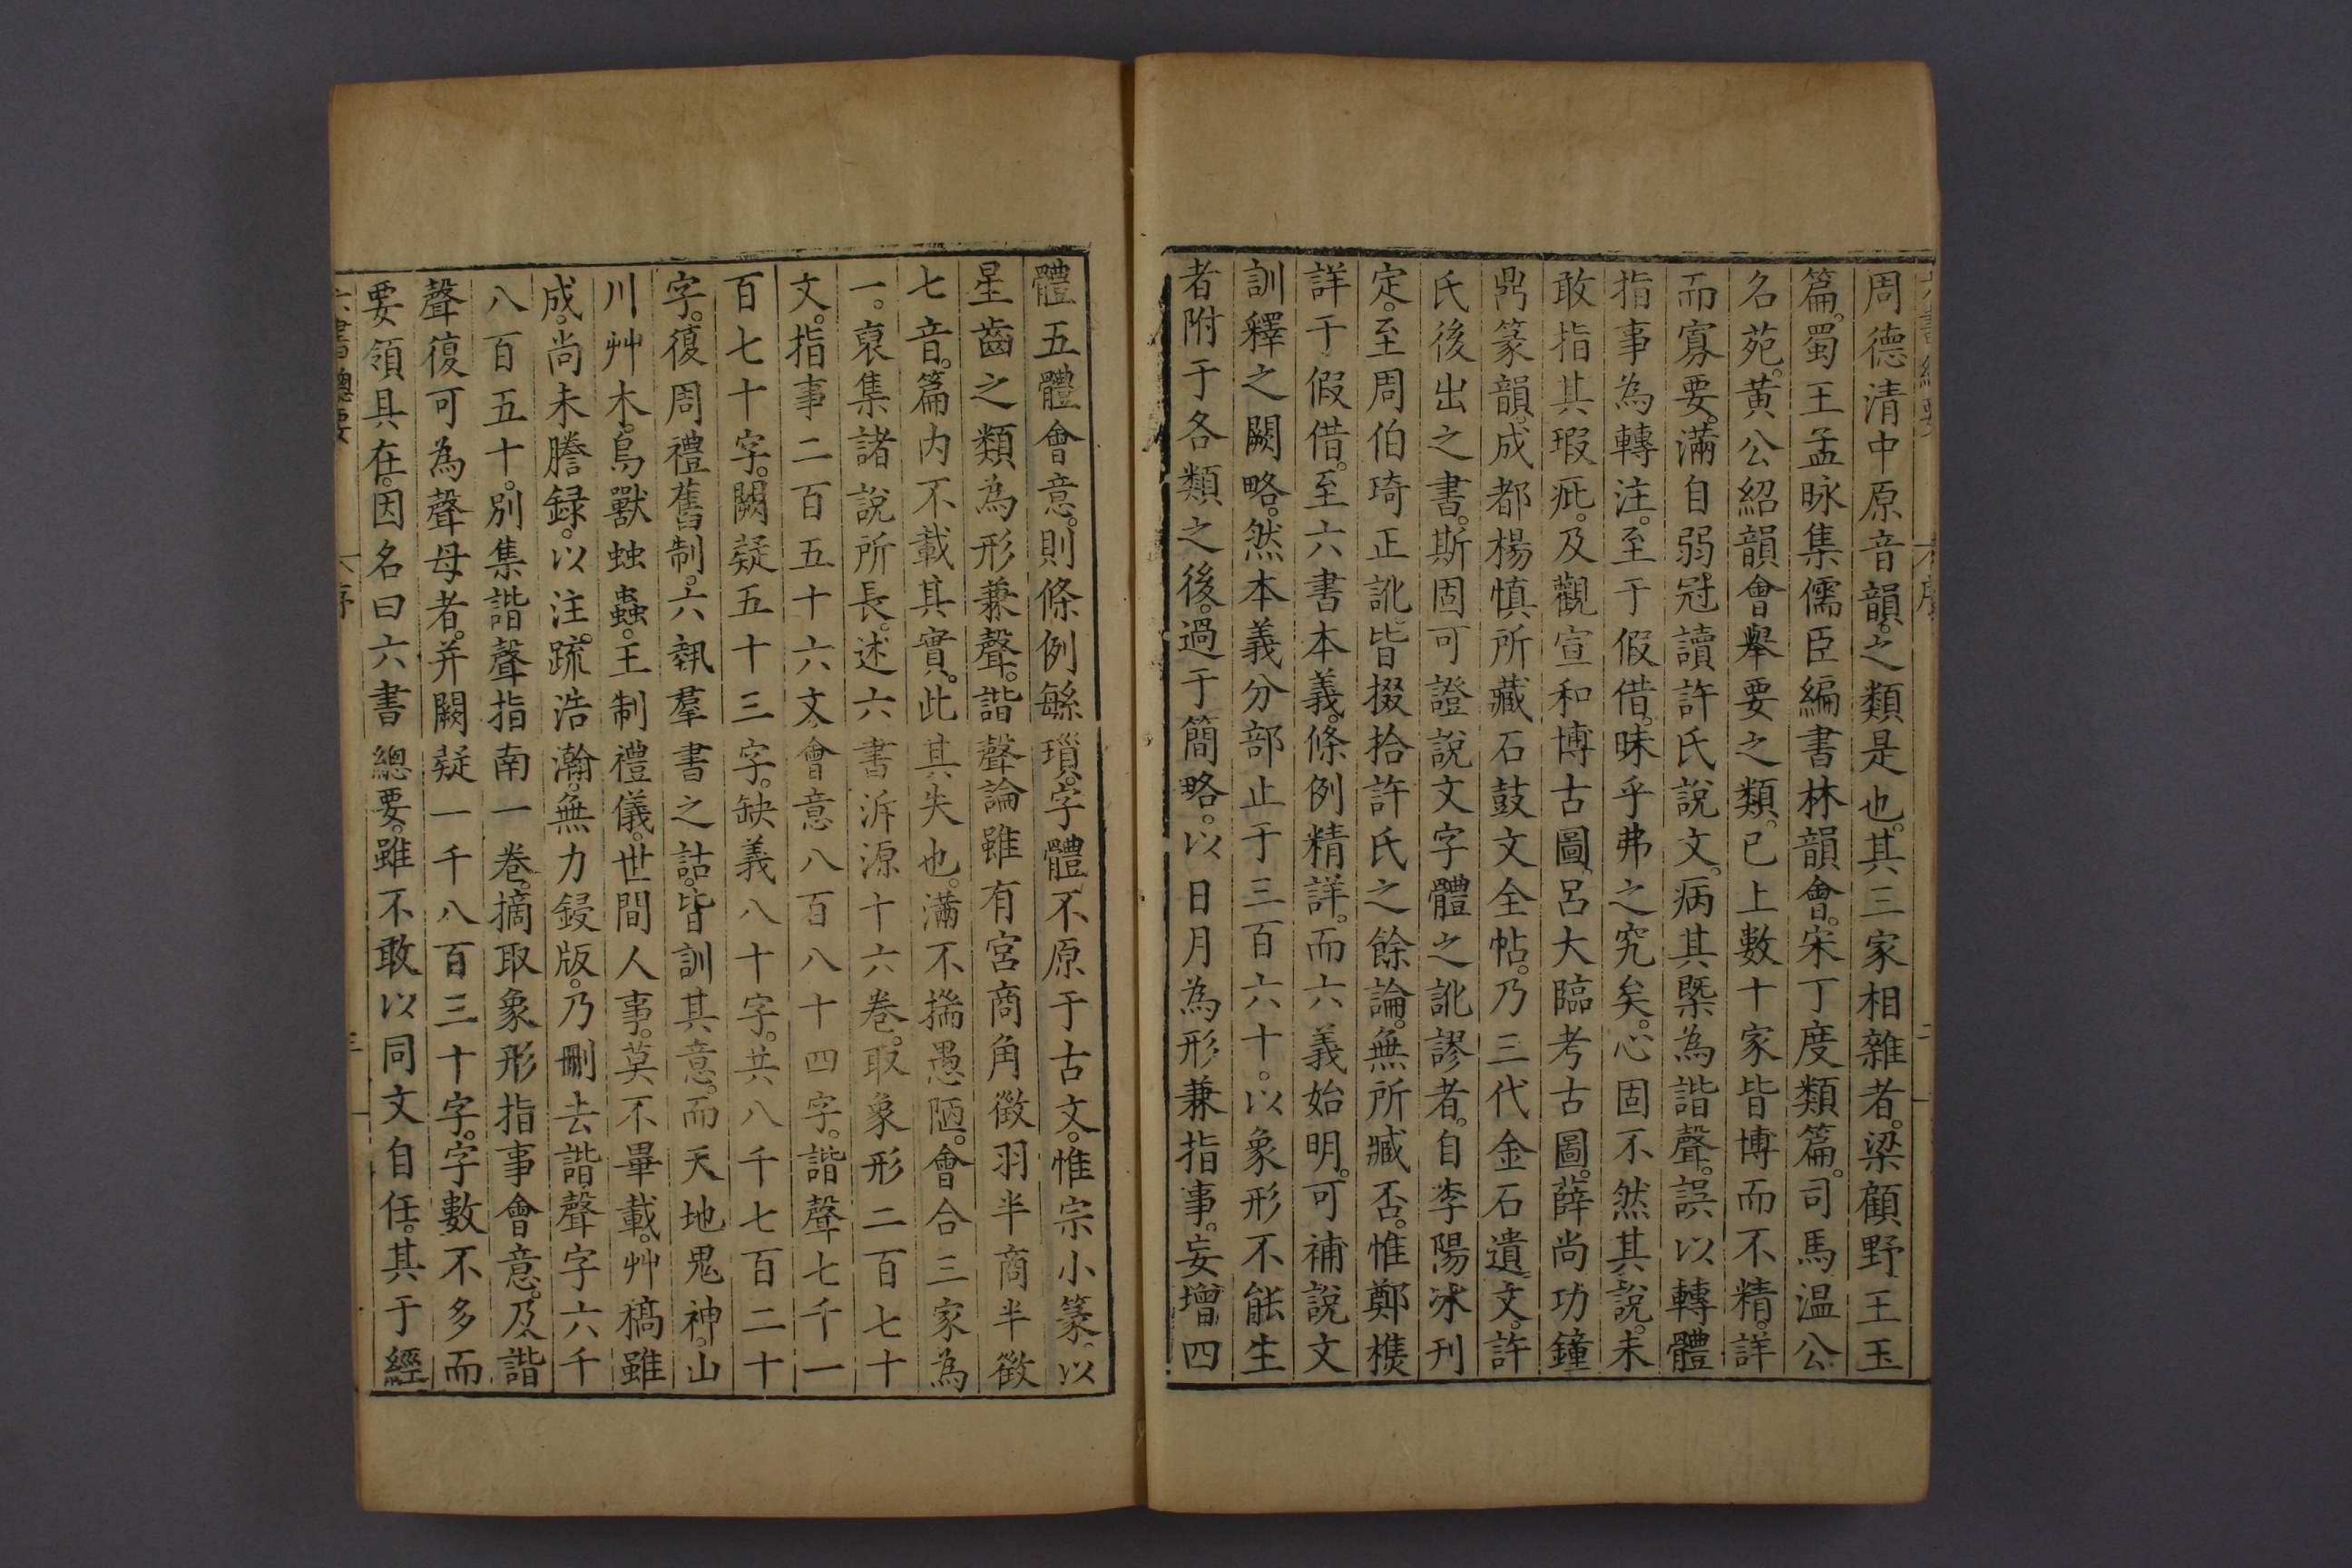 周德清中原音韻。之類是也。其三家相雜者。梁顧野王玉
篇。蜀王孟昹集儒臣編書林韻會。宋丁度類篇。司馬温公
名苑。黄公紹韻會舉要之類。已上數十家皆博而不精。詳
而寡要。滿自弱冠讀許氏說文。病其槩為諧聲。誤以轉體
指事為轉注。至于假借。昧乎弗之究矣。心固不然其說。未
敢指其瑕疵。及觀宣和博古圖呂大臨考古圖。薛尚功鐘
鼎篆韻。成都楊慎所藏石鼓文全帖。乃三代金石遺文。許
氏後出之書。斯固可證說文字體之訛謬者。自李陽冰刊
定。至周伯琦正訛。皆掇拾許氏之餘論。無所臧否。惟鄭樵
詳于假借。至六書本義。條例精詳。而六義始明。可補說文
訓釋之闕略。然本義分部止于三百六十。以象形不能生
者附于各類之後。過于簡略。以日月為形兼指事。妄增四
體五體會意。則條例緐瑣。字體不原于古文。惟宗小篆。以
星齒之類為形兼聲。諧聲論雖有宮商角徵羽半商半徵
七音。篇内不載其實。此其失也。滿不揣愚陋。會合三家為
一。裒集諸說所長。述六書泝源十六卷。取象形二百七十
文。指事二百五十六文會意八百八十四字。諧聲七千一
百七十字。闕疑五十三字。缺義八十字。共八千七百二十
字。復周禮舊制。六執羣書之詁。皆訓其意。而天地鬼神。山
川艸木。鳥獸蚰蟲。王制禮儀。世間人事。莫不畢載。艸稿雖
成。尚未謄録。以注。䟽浩瀚。無力鋟版。乃刪去諧聲字六千
八百五十。別集諧聲指南一卷。摘取象形指事會意。及諧
聲復可為聲母者。并闕疑一千八百三十字。字數不多而
要領具在。因名曰六書總要。雖不敢以同文自任。其于經
六書總要
序
三